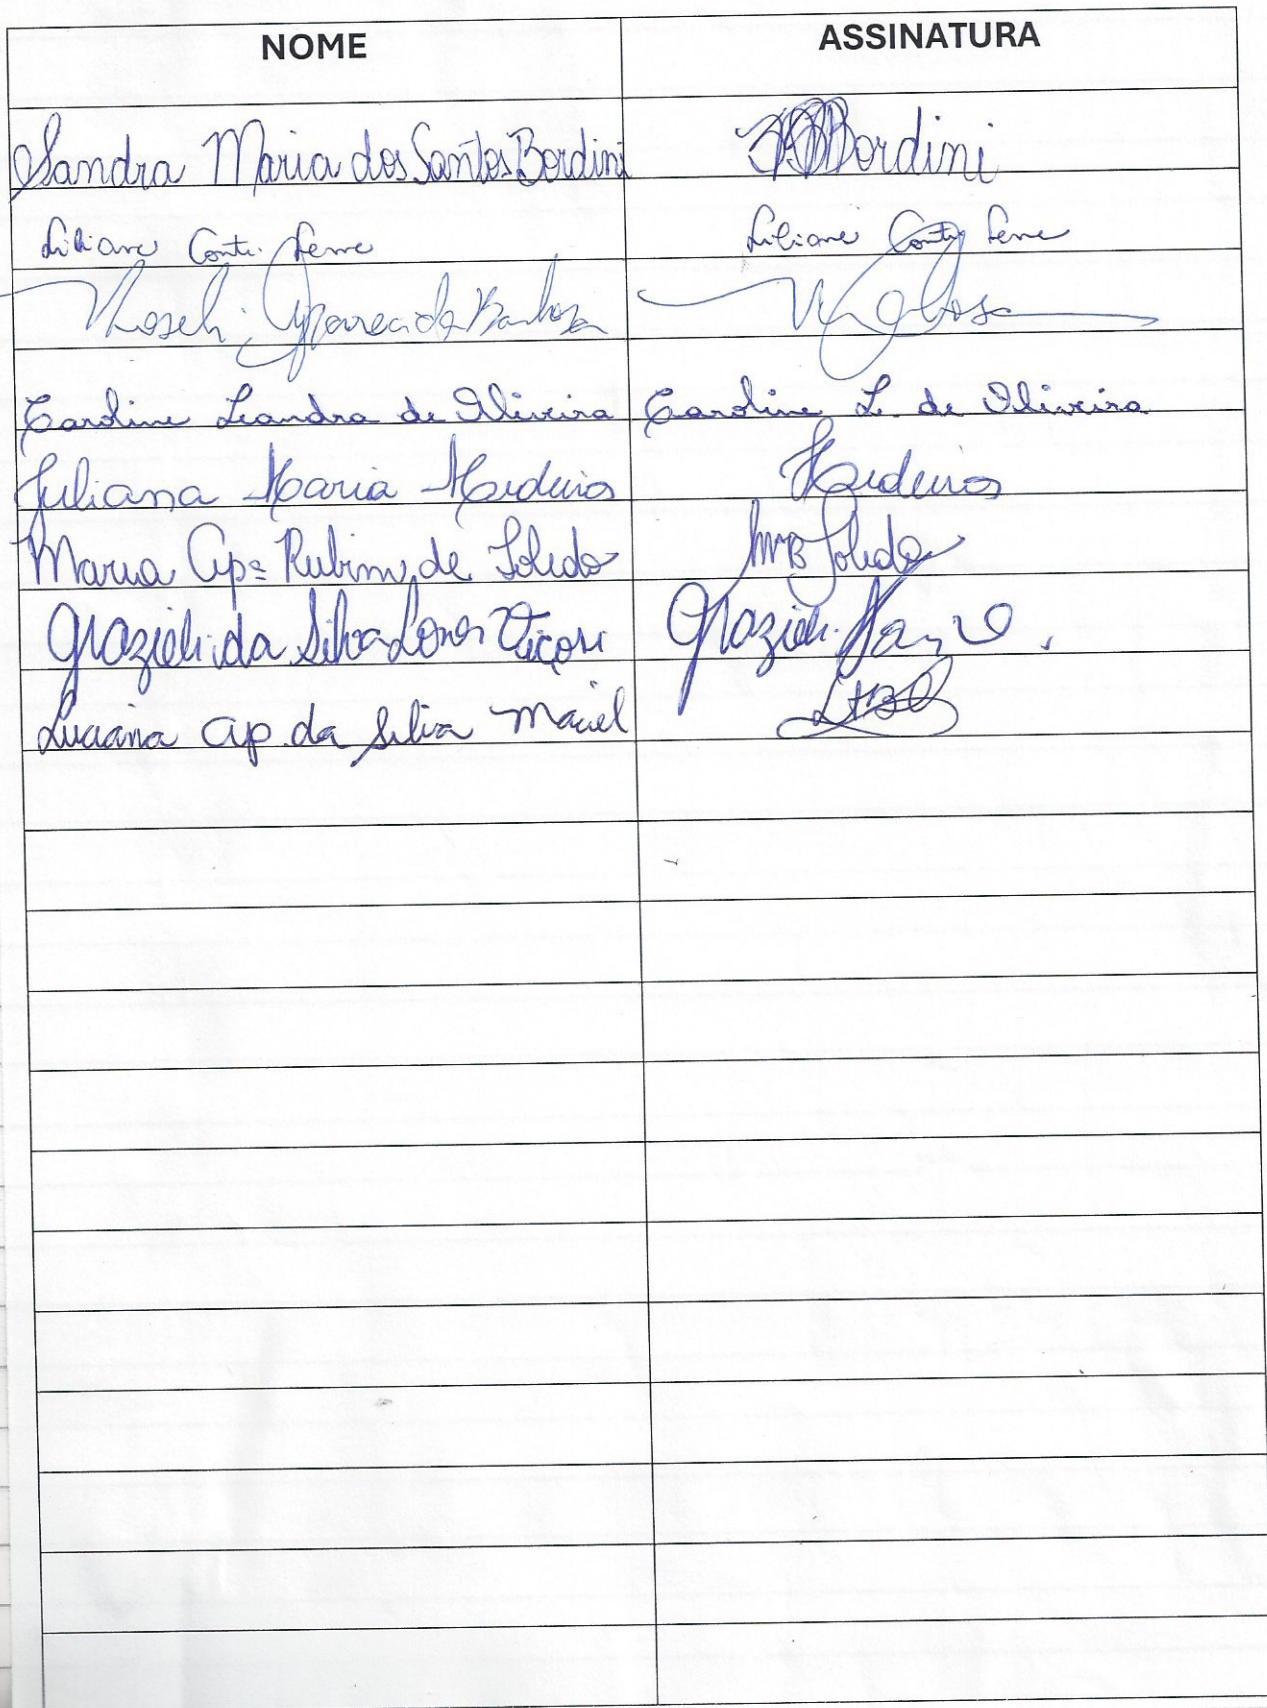 NOME ASSINATURA
Sandra Maria dos Santos Bordini Bordini
Liliane Conti Leme Liliane Conti Leme
Roseli Aparecida Barbosa
Caroline Leandra de Oliveira Caroline L. de Oliveira
Juliana Maria Medeiros Medeiros
Maria Apª Rubim de Toledo MRB Toledo
Grazieli da Silva Grazieli
Luciana Ap. da Silva Maciel